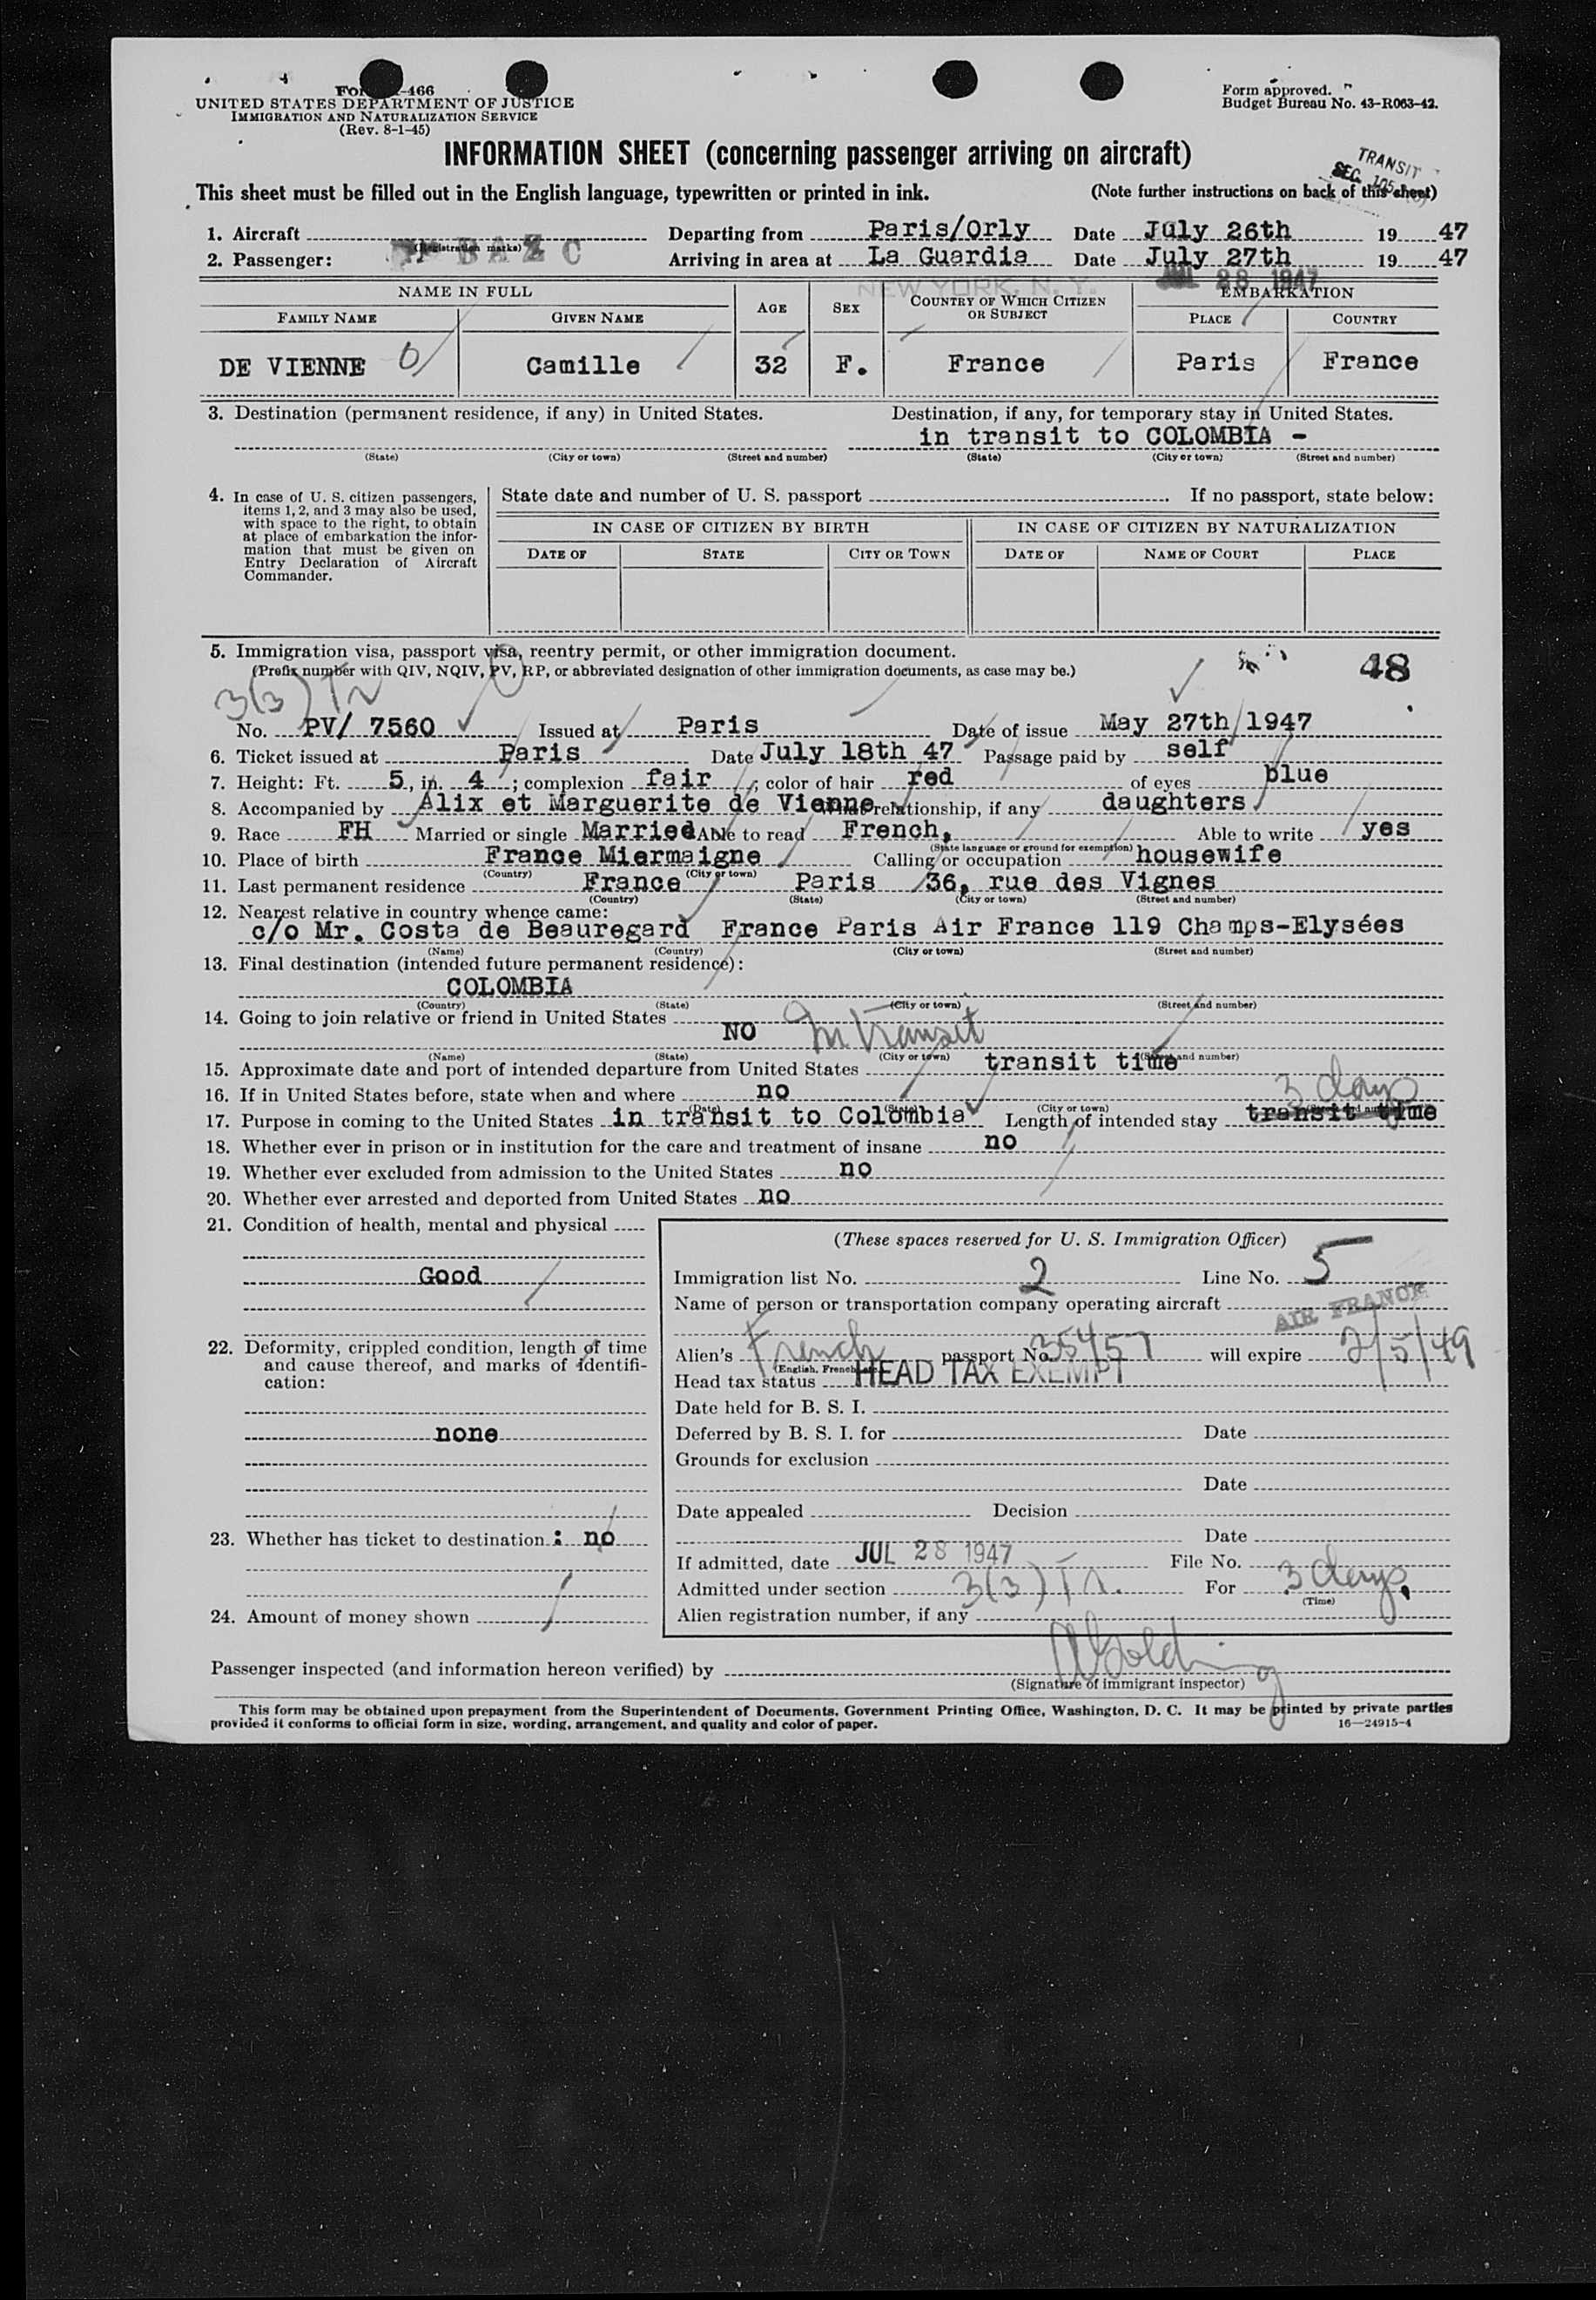 -466
UNITED STATES DEPARTMENT OF JUSTICE
IMMIGRATION AND NATURALIZATION SERVICE
(Rev. 8-1-45)
Form approved.
Budget Bureau No. 43-R063-42.
INFORMATION SHEET (concerning passenger arriving on aircraft)
TRANSIT
SEC. 105
This sheet must be filled out in the English language, typewritten or printed in ink. (Note further instructions on back of this sheet)
1. Aircraft Departing from Paris/Orly Date July 26th 1947
(Registration marks) BAZC
2. Passenger: Arriving in area at La Guardia Date July 27th 1947
NEW YORK, N. Y. 28 1947
NAME IN FULL AGE SEX COUNTRY OF WHICH CITIZEN OR SUBJECT EMBARKATION
FAMILY NAME GIVEN NAME PLACE COUNTRY
DE VIENNE Camille 32 F. France Paris France
3. Destination (permanent residence, if any) in United States. Destination, if any, for temporary stay in United States.
in transit to COLOMBIA -
(State) (City or town) (Street and number) (State) (City or town) (Street and number)
4. In case of U. S. citizen passengers, items 1, 2, and 3 may also be used, with space to the right, to obtain at place of embarkation the information that must be given on Entry Declaration of Aircraft Commander.
State date and number of U. S. passport . If no passport, state below:
IN CASE OF CITIZEN BY BIRTH IN CASE OF CITIZEN BY NATURALIZATION
DATE OF STATE CITY OR TOWN DATE OF NAME OF COURT PLACE
5. Immigration visa, passport visa, reentry permit, or other immigration document.
(Prefix number with QIV, NQIV, PV, RP, or abbreviated designation of other immigration documents, as case may be.)
48
3(3) Tr
No. PV/ 7560 Issued at Paris Date of issue May 27th 1947
6. Ticket issued at Paris Date July 18th 47 Passage paid by self
7. Height: Ft. 5, in. 4; complexion fair; color of hair red of eyes blue
8. Accompanied by Alix et Marguerite de Vienne relationship, if any daughters
9. Race FH Married or single Married Able to read French, Able to write yes
(State language or ground for exemption)
10. Place of birth France Miermaigne Calling or occupation housewife
(Country) (City or town)
11. Last permanent residence France Paris 36, rue des Vignes
(Country) (State) (City or town) (Street and number)
12. Nearest relative in country whence came:
c/o Mr. Costa de Beauregard France Paris Air France 119 Champs-Elysées
(Name) (Country) (City or town) (Street and number)
13. Final destination (intended future permanent residence):
COLOMBIA
(Country) (State) (City or town) (Street and number)
14. Going to join relative or friend in United States
NO In transit
(Name) (State) (City or town) (Street and number)
15. Approximate date and port of intended departure from United States transit time
16. If in United States before, state when and where no
3 days
(Date) (State) (City or town) (Street and number)
17. Purpose in coming to the United States in transit to Colombia Length of intended stay transit time
18. Whether ever in prison or in institution for the care and treatment of insane no
19. Whether ever excluded from admission to the United States no
20. Whether ever arrested and deported from United States no
21. Condition of health, mental and physical
Good
22. Deformity, crippled condition, length of time and cause thereof, and marks of identification:
none
23. Whether has ticket to destination: no
24. Amount of money shown
(These spaces reserved for U. S. Immigration Officer)
Immigration list No. 2 Line No. 5
Name of person or transportation company operating aircraft
AIR FRANCE
Alien's French passport No. 35457 will expire 2/5/49
(English, French, etc.)
Head tax status HEAD TAX EXEMPT
Date held for B. S. I.
Deferred by B. S. I. for Date
Grounds for exclusion
Date
Date appealed Decision
Date
If admitted, date JUL 28 1947 File No.
Admitted under section 3(3) Tr. For 3 days
(Time)
Alien registration number, if any
Passenger inspected (and information hereon verified) by
(Signature of immigrant inspector)
This form may be obtained upon prepayment from the Superintendent of Documents, Government Printing Office, Washington, D. C. It may be printed by private parties
provided it conforms to official form in size, wording, arrangement, and quality and color of paper. 16—24915-4